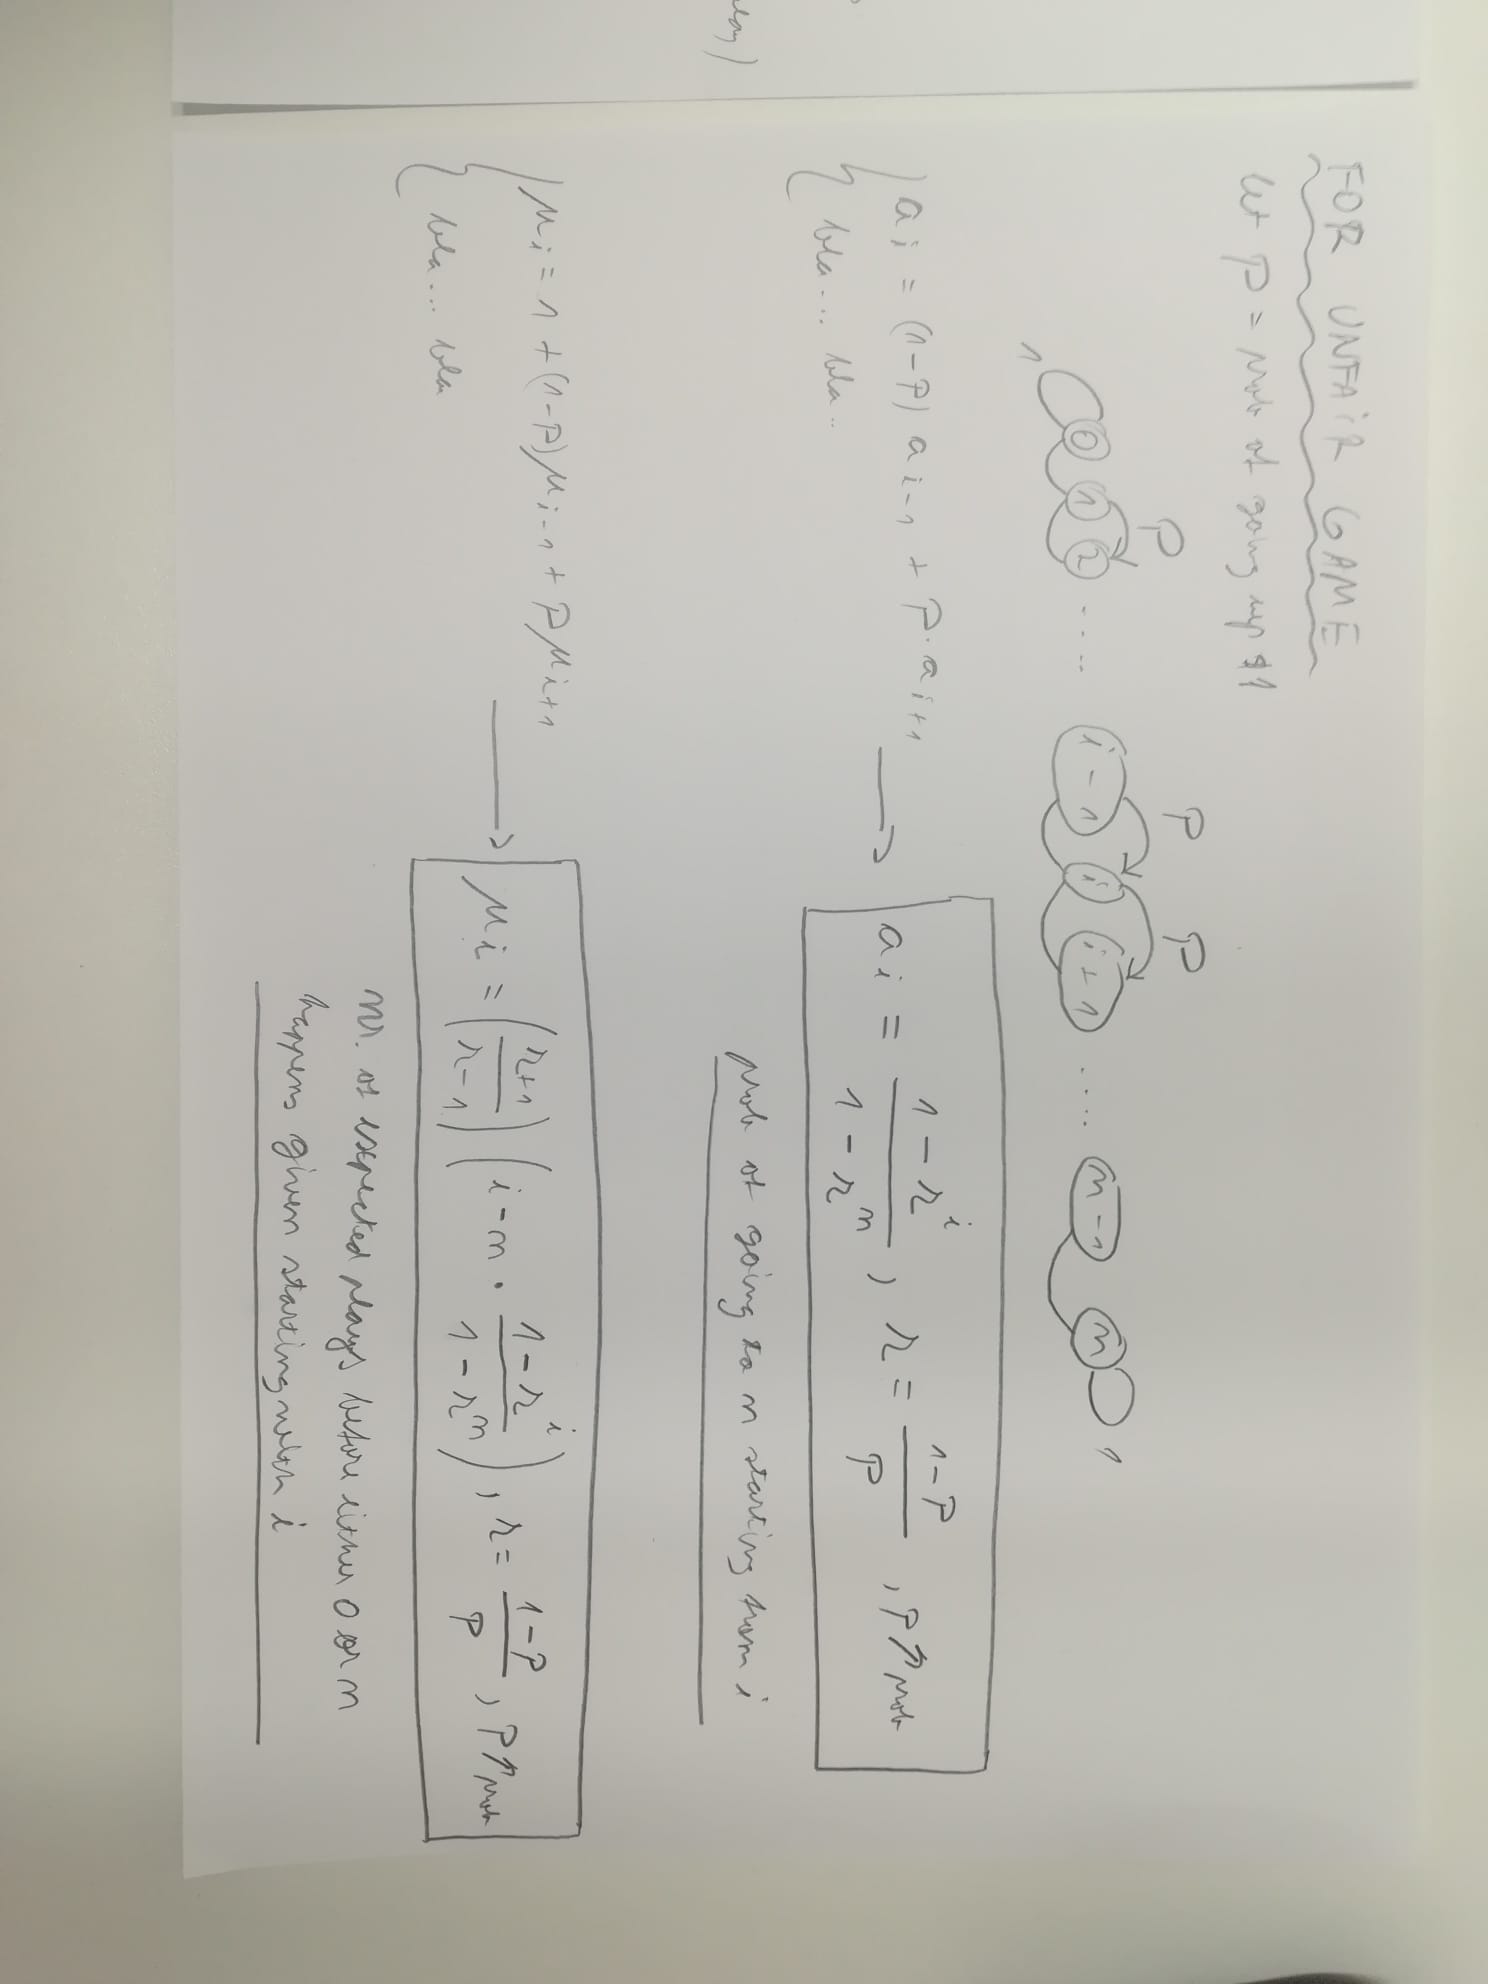 FOR UNFAiR GAME
let p = prob of going up $1
P P P
0 1 2 .... i-1 i i+1 .... n-1 n 1
1
ai = (1-P) ai-1 + P·ai+1 → ai = (1-r^i)/(1-r^n), r = (1-P)/P , P↑prob
bla... bla..
prob of going to n starting from i
lay)
μi = 1 + (1-P)μi-1 + Pμi+1 → μi = ((r+1)/(r-1)) (i-n · (1-r^i)/(1-r^n)), r = (1-P)/P , P↑prob
bla... bla
nr. of expected plays before either 0 or n
happens given starting with i